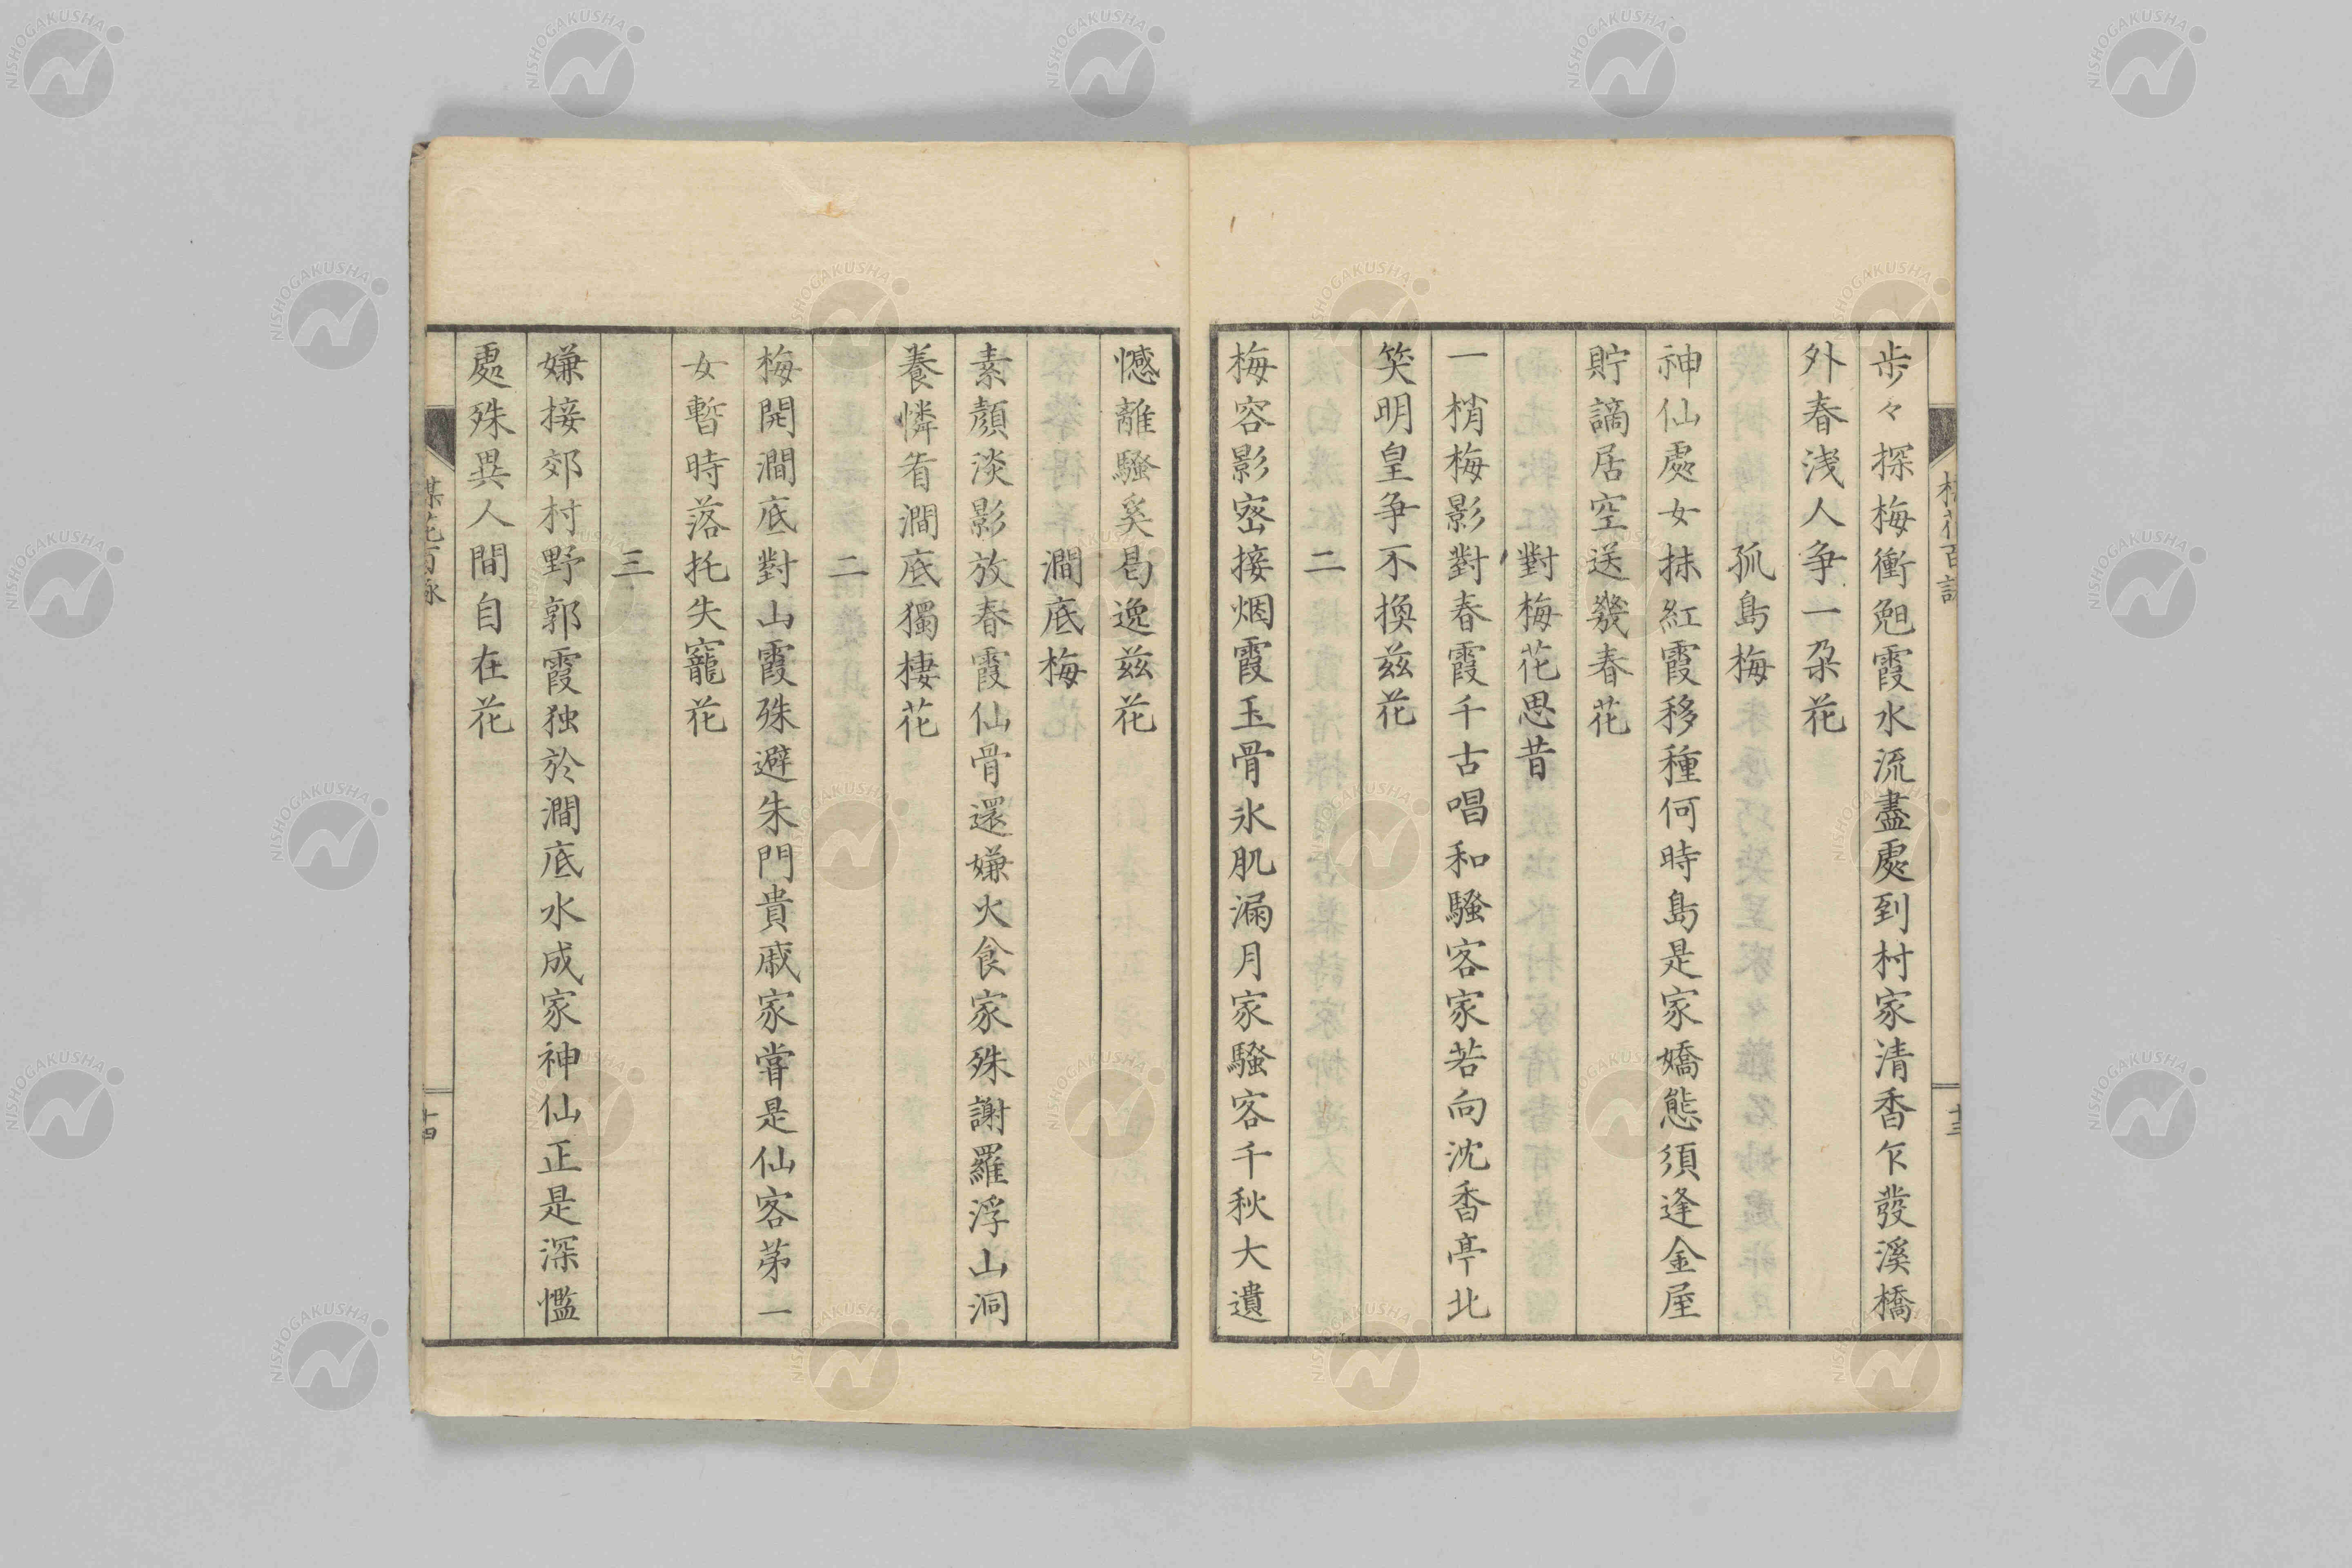 歩々探梅衝兜霞水流盡處到村家清香乍發溪橋
外春浅人争一朶花
孤島梅
神仙處女抹紅霞移種何時島是家嬌態須逢金屋
貯謫居空送幾春花
對梅花思昔
一梢梅影對春霞千古唱和騷客家若向沈香亭北
笑明皇争不換茲花
二
梅容影密接烟霞玉骨氷肌漏月家騷客千秋大遺
憾離騷奚曷逸茲花
澗底梅
素顏淡影放春霞仙骨還嫌火食家殊謝羅浮山洞
養憐看澗底獨棲花
二
梅開澗底對山霞殊避朱門貴戚家嘗是仙客第一
女暫時落托失寵花
三
嫌接郊村野郭霞独於澗底水成家神仙正是深懺
處殊異人間自在花
梅花百詠
十四
NISHOGAKUSHA